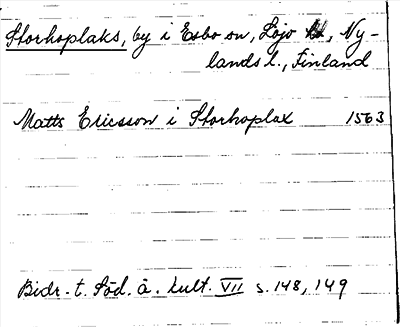 Storhoplaks, by i Esbo sn, Lojo hd, Ny-
lands l., Finland
Matts Ericsson i Storhoplax 1563
Bidr. t. Söd. å. kult. VII s. 148, 149